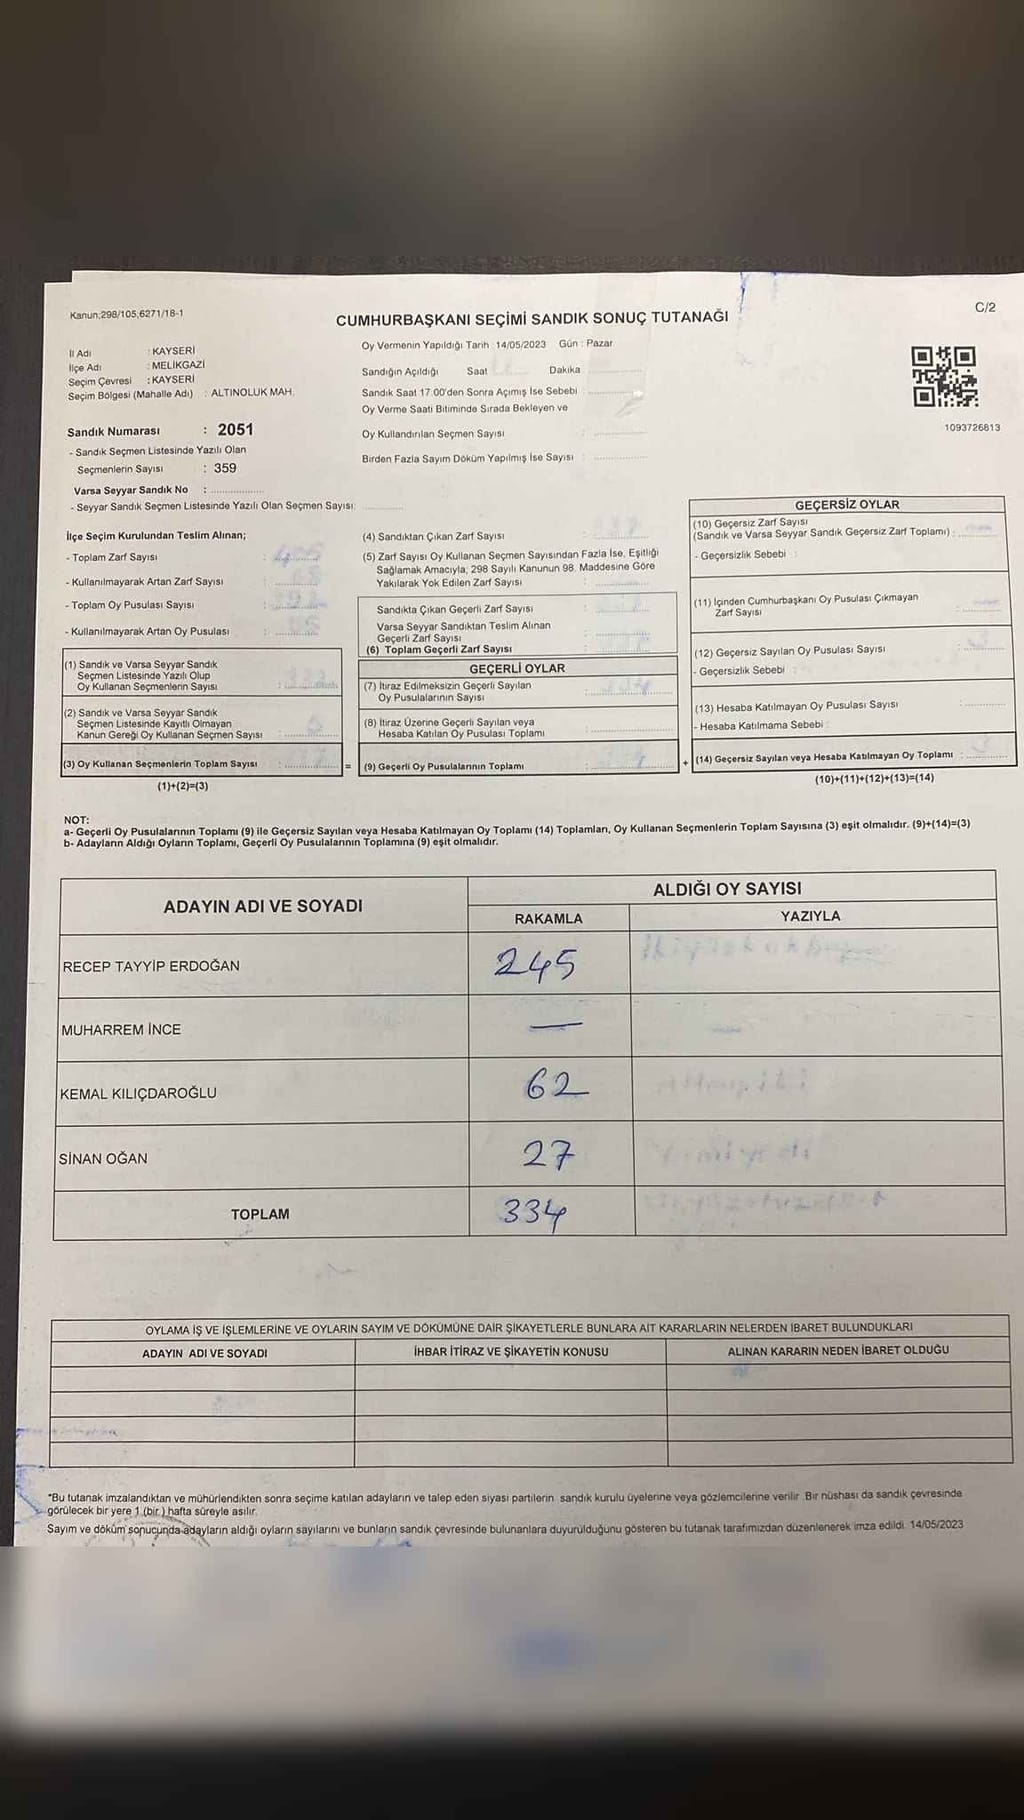 Kanun;298/105;6271/18-1
C/2
CUMHURBAŞKANI SEÇİMİ SANDIK SONUÇ TUTANAĞI
İl Adı : KAYSERİ
İlçe Adı : MELİKGAZİ
Seçim Çevresi : KAYSERİ
Seçim Bölgesi (Mahalle Adı) : ALTINOLUK MAH.
Sandık Numarası : 2051
- Sandık Seçmen Listesinde Yazılı Olan
Seçmenlerin Sayısı : 359
Varsa Seyyar Sandık No :
- Seyyar Sandık Seçmen Listesinde Yazılı Olan Seçmen Sayısı:
Oy Vermenin Yapıldığı Tarih : 14/05/2023 Gün : Pazar
Sandığın Açıldığı Saat Dakika
Sandık Saat 17:00'den Sonra Açımış İse Sebebi :
Oy Verme Saati Bitiminde Sırada Bekleyen ve
Oy Kullandırılan Seçmen Sayısı :
Birden Fazla Sayım Döküm Yapılmış İse Sayısı :
1093726813
İlçe Seçim Kurulundan Teslim Alınan;
- Toplam Zarf Sayısı :
- Kullanılmayarak Artan Zarf Sayısı :
- Toplam Oy Pusulası Sayısı :
- Kullanılmayarak Artan Oy Pusulası :
(1) Sandık ve Varsa Seyyar Sandık
Seçmen Listesinde Yazılı Olup
Oy Kullanan Seçmenlerin Sayısı :
(2) Sandık ve Varsa Seyyar Sandık
Seçmen Listesinde Kayıtlı Olmayan
Kanun Gereği Oy Kullanan Seçmen Sayısı :
(3) Oy Kullanan Seçmenlerin Toplam Sayısı :
(1)+(2)=(3)
=
(4) Sandıktan Çıkan Zarf Sayısı :
(5) Zarf Sayısı Oy Kullanan Seçmen Sayısından Fazla İse, Eşitliği
Sağlamak Amacıyla, 298 Sayılı Kanunun 98. Maddesine Göre
Yakılarak Yok Edilen Zarf Sayısı :
Sandıkta Çıkan Geçerli Zarf Sayısı :
Varsa Seyyar Sandıktan Teslim Alınan
Geçerli Zarf Sayısı :
(6) Toplam Geçerli Zarf Sayısı :
GEÇERLİ OYLAR
(7) İtiraz Edilmeksizin Geçerli Sayılan
Oy Pusulalarının Sayısı :
(8) İtiraz Üzerine Geçerli Sayılan veya
Hesaba Katılan Oy Pusulası Toplamı :
(9) Geçerli Oy Pusulalarının Toplamı :
+
GEÇERSİZ OYLAR
(10) Geçersiz Zarf Sayısı
(Sandık ve Varsa Seyyar Sandık Geçersiz Zarf Toplamı) :
- Geçersizlik Sebebi :
(11) İçinden Cumhurbaşkanı Oy Pusulası Çıkmayan
Zarf Sayısı :
(12) Geçersiz Sayılan Oy Pusulası Sayısı :
- Geçersizlik Sebebi :
(13) Hesaba Katılmayan Oy Pusulası Sayısı :
- Hesaba Katılmama Sebebi :
(14) Geçersiz Sayılan veya Hesaba Katılmayan Oy Toplamı :
(10)+(11)+(12)+(13)=(14)
NOT:
a- Geçerli Oy Pusulalarının Toplamı (9) ile Geçersiz Sayılan veya Hesaba Katılmayan Oy Toplamı (14) Toplamları, Oy Kullanan Seçmenlerin Toplam Sayısına (3) eşit olmalıdır. (9)+(14)=(3)
b- Adayların Aldığı Oyların Toplamı, Geçerli Oy Pusulalarının Toplamına (9) eşit olmalıdır.
ADAYIN ADI VE SOYADI
ALDIĞI OY SAYISI
RAKAMLA YAZIYLA
RECEP TAYYİP ERDOĞAN 245
MUHARREM İNCE —
KEMAL KILIÇDAROĞLU 62
SİNAN OĞAN 27
TOPLAM 334
OYLAMA İŞ VE İŞLEMLERİNE VE OYLARIN SAYIM VE DÖKÜMÜNE DAİR ŞİKAYETLERLE BUNLARA AİT KARARLARIN NELERDEN İBARET BULUNDUKLARI
ADAYIN ADI VE SOYADI İHBAR İTİRAZ VE ŞİKAYETİN KONUSU ALINAN KARARIN NEDEN İBARET OLDUĞU
*Bu tutanak imzalandıktan ve mühürlendikten sonra seçime katılan adayların ve talep eden siyasi partilerin sandık kurulu üyelerine veya gözlemcilerine verilir. Bir nüshası da sandık çevresinde
görülecek bir yere 1 (bir ) hafta süreyle asılır.
Sayım ve döküm sonucunda adayların aldığı oyların sayılarını ve bunların sandık çevresinde bulunanlara duyurulduğunu gösteren bu tutanak tarafımızdan düzenlenerek imza edildi. 14/05/2023